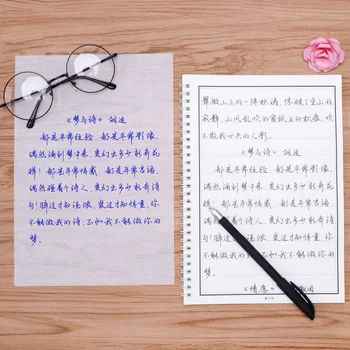 《梦与诗》 胡适
都是平常经验,都是平常影像,
偶然涌到梦中来,变幻出多少新奇花
样!都是平常情感,都是平常言语,
偶然碰着个诗人,变幻出多少新奇诗
句!醉过才知酒浓,爱过才知情重,你
不能做我的诗,正如我不能做你的
梦。
翠微山上的一阵松涛,惊破了空山的
寂静。山风吹乱的窗纸上的松痕,吹
不散我心头的人影。
《梦与诗》 胡适
都是平常经验,都是平常影像,
偶然涌到梦中来,变幻出多少新奇花
样!都是平常情感,都是平常言语,
偶然碰着个诗人,变幻出多少新奇诗
句!醉过才知酒浓,爱过才知情重,
你不能做我的诗,正如我不能做你的
梦。
《情愿》